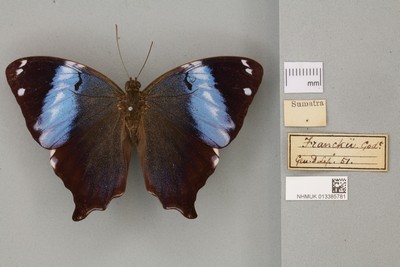 mm
Sumatra
Franckii. God^t.
51.
NHMUK 013365781